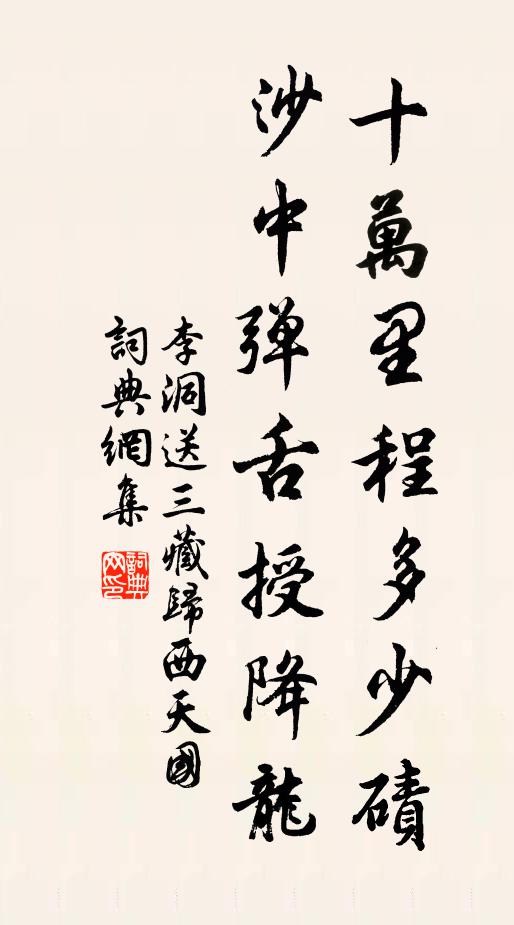 十萬里程多少磧
沙中弾舌授降龍
李洞送三藏歸西天國
詞典網集
詞典
网印